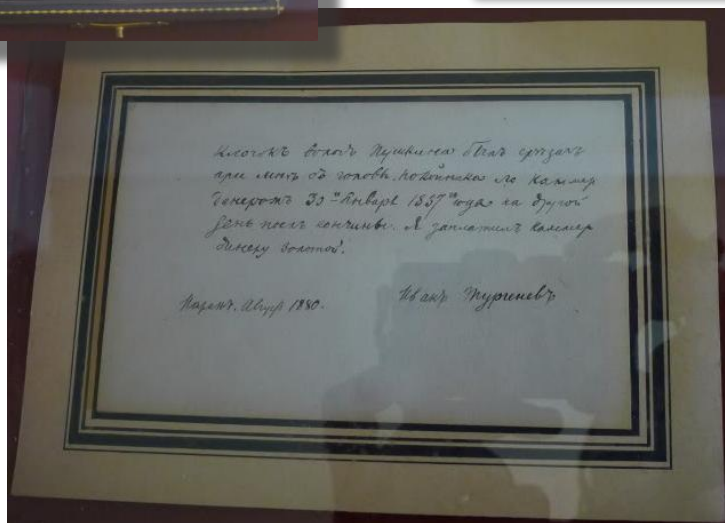 Клочокъ волосъ Пушкина былъ срѣзанъ
при мнѣ съ головы покойника его камер
динеромъ 30го Января 1837го года на другой
день послѣ кончины. Я заплатилъ камер
динеру золотой.
Парижъ. Августъ 1880.
Иванъ Тургеневъ